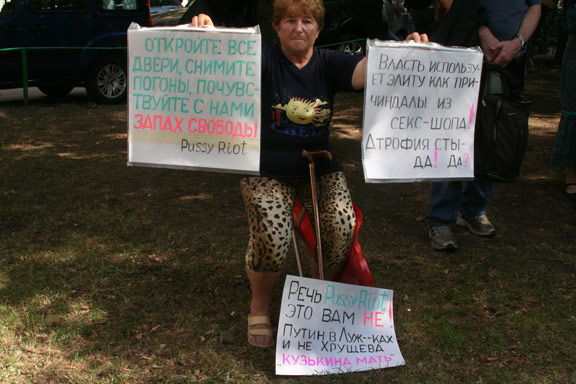 ОТКРОЙТЕ ВСЕ
ДВЕРИ, СНИМИТЕ
ПОГОНЫ, ПОЧУВ-
СТВУЙТЕ С НАМИ
ЗАПАХ СВОБОДЫ
Pussy Riot
ВЛАСТЬ ИСПОЛЬЗУ-
ЕТ ЭЛИТУ КАК ПРИ-
ЧИНДАЛЫ ИЗ
СЕКС-ШОПА!
АТРОФИЯ СТЫ-
ДА! ДА?
РЕЧЬ Pussy Riot
ЭТО ВАМ НЕ!
ПУТИН В ЛУЖ--КАХ
И НЕ ХРУЩЕВА
"КУЗЬКИНА МАТЬ"